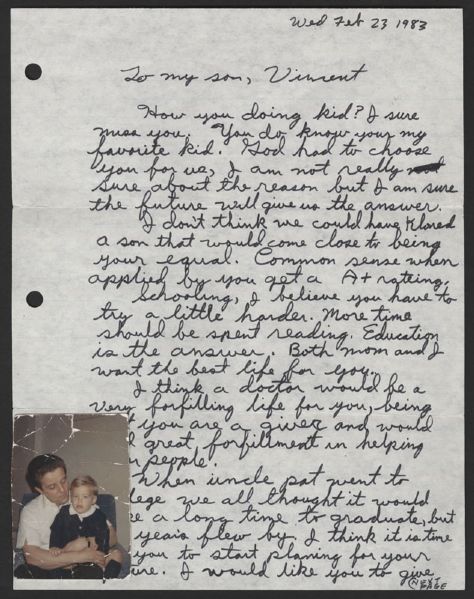 Wed Feb 23 1983
To my son, Vincent
How you doing kid? I sure
miss you. You do know your my
favorite kid. God had to choose
you for us, I am not really
sure about the reason but I am sure
the future will give us the answer.
I don't think we could have kloned
a son that would come close to being
your equal. Common sense when
applied by you get a A+ rateing,
Schooling, I believe you have to
try a little harder. More time
should be spent reading. Education
is the answer. Both mom and I
want the best life for you.
I think a doctor would be a
very forfilling life for you, being
you are a giver and would
great, forfillment in helping
people.
When uncle pat went to
lege we all thought it would
a long time to graduate, but
years flew by. I think it is time
you to start planing for your
ure. I would like you to give
NEXT
PAGE